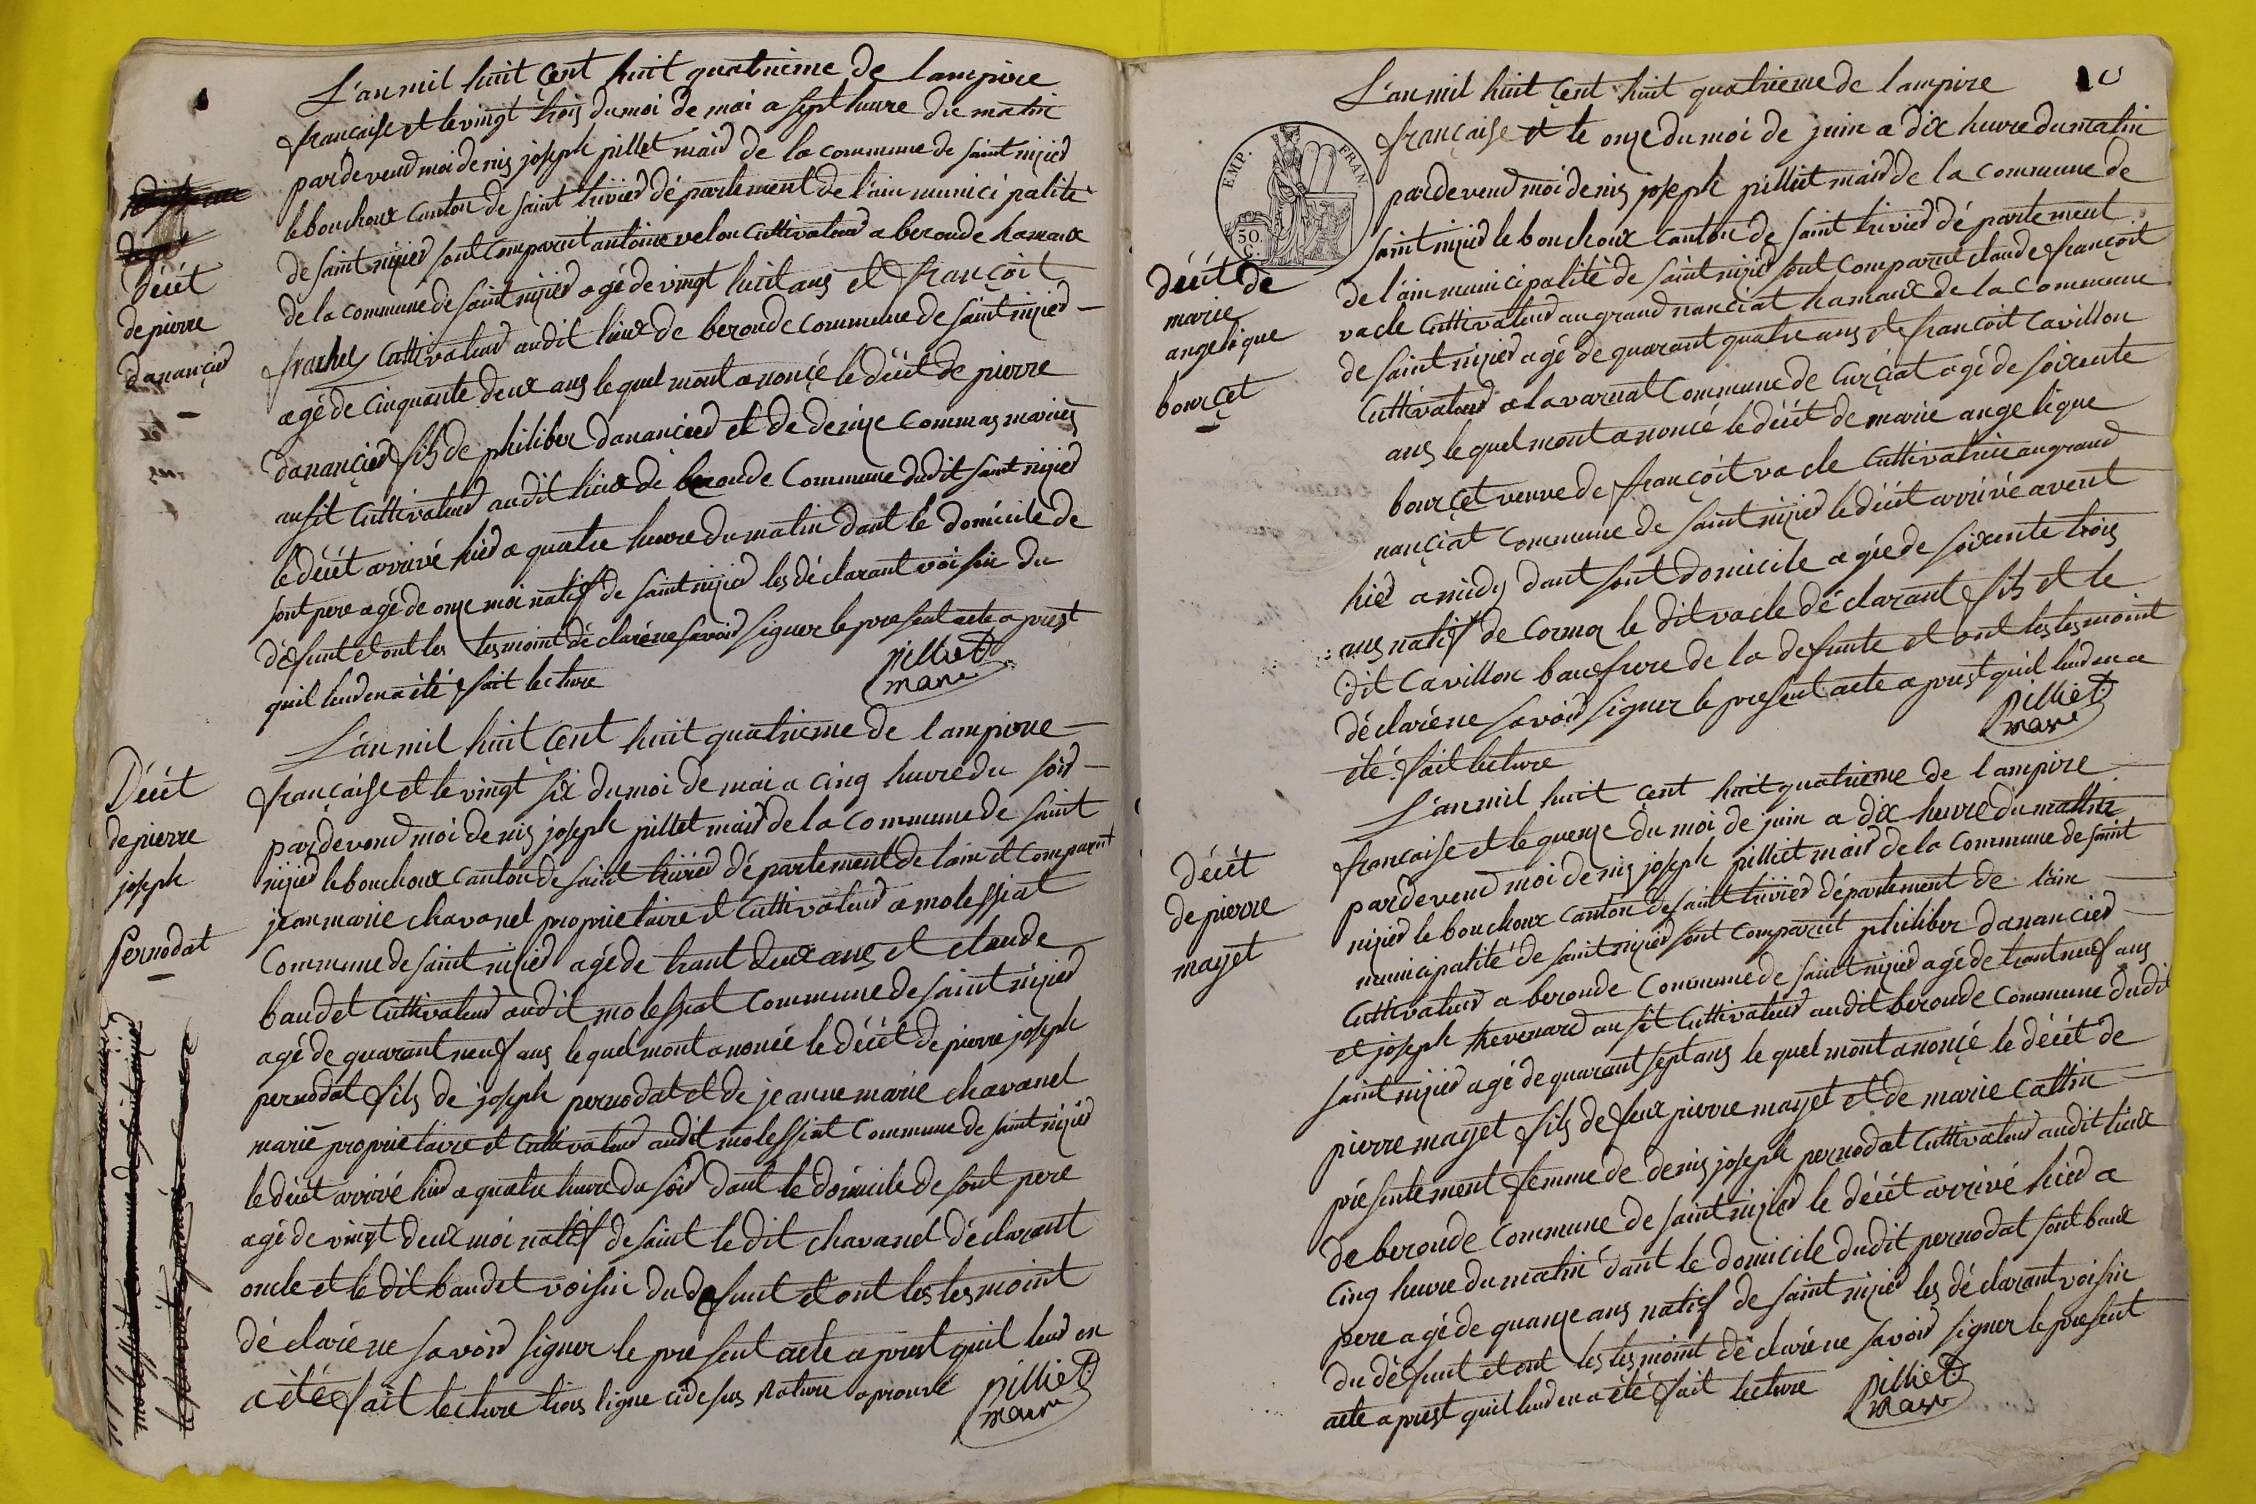 L'an mil huit çent huit quatrieme de lampire
française et le vingt trois du moi de mai a sept heure du matin
pardevend moi denis joseph pillet maid de la commune de saint nizied
le bouchoux canton de saint trivied département de l'ain municipalité
de saint nizied sont comparut antoine velon cultivateud a beronde hamaux
de la commune de saint nizied agé de vingt huit ans et françoit
cultivateud audit lieux de beronde commune de saint nizied
agé de cinquante deux ans lequel mont anonçé le décét de pierre
danancied fils de philiber danancied et de denize commas mariés
ausit cultivateud audit lieux de beronde commune dudit saint nizied
le décét arrivé hied a quatre heure du matin dant le domicile de
sont pere agé de onze moi natif de saint nizied les déclarant voisin du
défunt et ont les tesmoint déclaré ne savoid signer le present acte aprest
quil leud en a été fait lecture
pilliet
maire
décét
de pierre
dananciéd
L'an mil huit çent huit quatrieme de lampire
française et le vingt six du moi de mai a cinq heure du soid
pardevend moi denis joseph pillet maid de la commune de saint
nizied le bouchoux canton de saint trivied département de lain et comparut
jean marie chavanel proprietaire et cultivateud a molessiat
commune de saint nizied agé de trant deux ans et claude
baudet cultivateud audit molessiat commune de saint nizied
agé de quarant neuf ans lequel mont anoncé le décét de pierre joseph
pernodat fils de joseph pernodat et de jeanne marie chavanel
marié proprietaire et cultivateud audit molessiat commune de saint nizied
le décét arrivé hied a quatre heure du soid dant le domicile de sont pere
agé de vingt deux moi natif de saint le dit chavanel déclarant
oncle et le dit baudet voisin du defunt et ont les tesmoint
déclaré ne savoid signer le present acte aprest quil leud en
a été fait lecture trois ligne cidesus nature aprouvé
pilliet
maire
Décét
de pierre
joseph
Pernodat
10
EMP. FRAN.
50.
C.
L'an mil huit çent huit quatrieme de lampire
française et le onze du moi de juin a dix heure du matin
pardevend moi denis joseph pilliet maid de la commune de
saint nizied le bouchoux canton de saint trivied département
de l'ain municipalité de saint nizied sont comparut claude françoit
vacle cultivateud au grand nanciat hamaux de la commune
de saint nizied agé de quarant quatre ans et françoit cavillon
cultivateud a lavarnat commune de curçiat agé de soixente
ans lequel mont anoncé le décét de marie angelique
bourçet veuve de françoit vacle cultivatrice au grand
nançiat commune de saint nizied le décét arrivé avent
hied a midy dant sont domicile agée de soixente trois
ans natif de cormoz le dit vacle déclarant fils et le
dit cavillon baufrere de la defunte et ont les tesmoint
déclaré ne savoid signer le present acte aprest quil leud en a
été fait lecture
pilliet
maire
décét de
marie
angelique
bourçet
L'an mil huit çent huit quatrieme de lampire
française et le quenze du moi de juin a dix heure du matin
pardevend moi denis joseph pilliet maid de la commune de saint
nizied le bouchoux canton de saint trivied département de l'ain
municipalité de saint nizied sont comparut philiber dananciéd
cultivateud a beronde commune de saint nizied agé de trant neuf ans
et joseph thevenard ausit cultivateud audit beronde commune dudit
saint nizied agé de quarant sept ans lequel mont anonçé le décét de
pierre mayet fils de feux pierre mayet et de marie cattin
présentement femme de denis joseph pernodat cultivateud audit lieux
de beronde commune de saint nizied le décét arrivé hied a
cinq heure du matin dant le domicile dudit pernodat sont baux
pere agé de quanze ans natif de saint nizied les déclarant voisin
du défunt et ont les tesmoint déclaré ne savoid signer le present
acte aprest quil leud en a été fait lecture
pilliet
maire
décét
de pierre
mayet